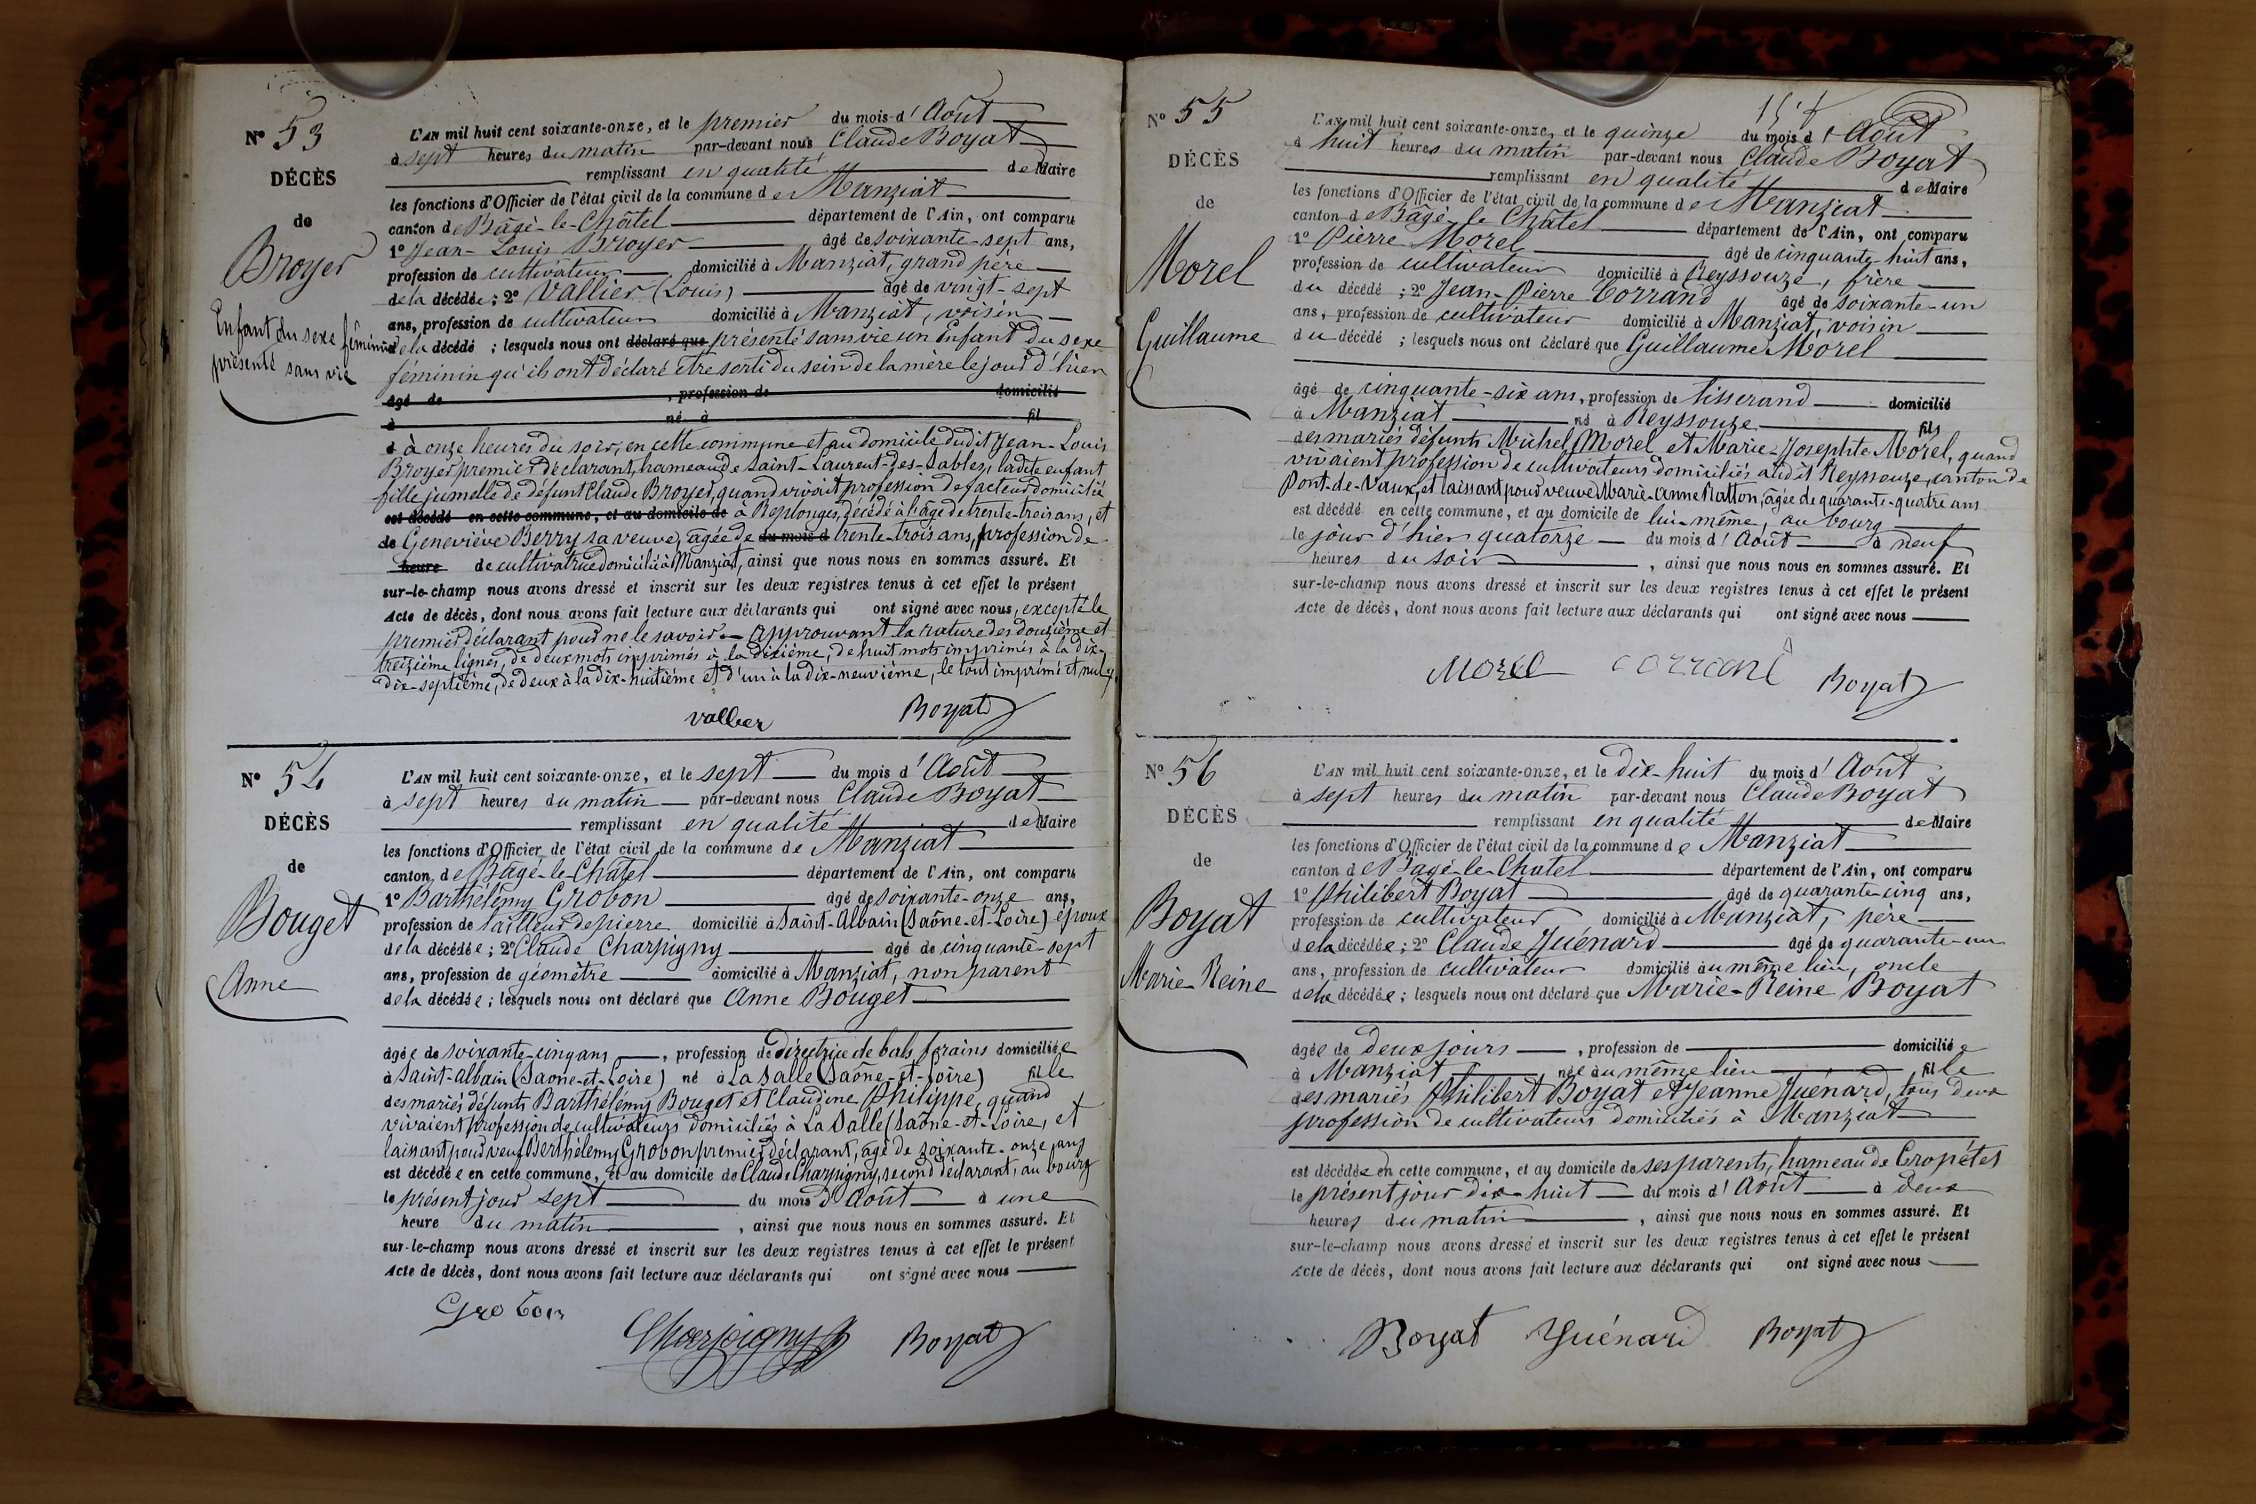 N° 53
DÉCÈS
de
Broyer
Enfant du sexe féminin
présenté sans vie
L'AN mil huit cent soixante-onze, et le premier du mois d'Août
à sept heures du matin par-devant nous Claude Boyat
remplissant en qualité de Maire
les fonctions d'Officier de l'état civil de la commune de Manziat
canton de Bâgé-le-Châtel département de l'Ain, ont comparu
1° Jean-Louis Broyer âgé de soixante-sept ans,
profession de cultivateur domicilié à Manziat, grand père
de la décédée; 2° Vallier (Louis) âgé de vingt-sept
ans, profession de cultivateur domicilié à Manziat, voisin
de la décédé ; lesquels nous ont déclaré que présenté sans vie un Enfant du sexe
féminin qu'ils ont déclaré être sorti du sein de la mère le jour d'hier
âgé de , profession de domicilié
à né à fil
d à onze heures du soir, en cette commune et au domicile dudit Jean-Louis
Broyer premier déclarant, hameau de Saint-Laurent-des-Sables, ladite enfant
fille jumelle de défunt Claude Broyer, quand vivait profession de facteur domicilié
est décédé en cette commune, et au domicile de à Replonges, décédé à l'âge de trente-trois ans, et
de Geneviève Berry sa veuve, âgée de du mois d trente-trois ans, profession de
heure de cultivatrice domiciliée à Manziat, ainsi que nous nous en sommes assuré. Et
sur-le-champ nous avons dressé et inscrit sur les deux registres tenus à cet effet le présent
Acte de décès, dont nous avons fait lecture aux déclarants qui ont signé avec nous, excepté le
premier déclarant pour ne le savoir. Approuvant la rature des douzième et
treizième lignes, de deux mots imprimés à la dixième, de huit mots imprimés à la dix-
dix-septième, de deux à la dix-huitième et d'un à la dix-neuvième, le tout imprimé et nul
vallier Boyat
N° 54
DÉCÈS
de
Bouget
Anne
L'AN mil huit cent soixante-onze, et le sept du mois d'Août
à sept heures du matin par-devant nous Claude Boyat
remplissant en qualité de Maire
les fonctions d'Officier de l'état civil de la commune de Manziat
canton de Bâgé-le-Châtel département de l'Ain, ont comparu
1° Barthélémy Grobon âgé de soixante-onze ans,
profession de tailleur de pierre domicilié à Saint-Albain (Saône-et-Loire) époux
de la décédée; 2° Claude Charpigny âgé de cinquante-sept
ans, profession de géomètre domicilié à Manziat, non parent
de la décédée; lesquels nous ont déclaré que Anne Bouget
âgée de soixante-cinq ans , profession de Directrice de bals forains domiciliée
à Saint-Albain (Saône-et-Loire) né à La Salle (Saône-et-Loire) fille
des mariés défunts Barthélémy Bouget et Claudine Philippe, quand
vivaient profession de cultivateurs domiciliés à La Salle (Saône-et-Loire, et
laissant pour veuf Berthélemy Grobon premier déclarant, âgé de soixante-onze ans
est décédée en cette commune, et au domicile de Claude Charpigny, second déclarant, au bourg
le présent jour sept du mois d'Août à une
heure du matin , ainsi que nous nous en sommes assuré. Et
sur-le-champ nous avons dressé et inscrit sur les deux registres tenus à cet effet le présent
Acte de décès, dont nous avons fait lecture aux déclarants qui ont signé avec nous
Grobon Charpigny Boyat
N° 55
DÉCÈS
de
Morel
Guillaume
L'AN mil huit cent soixante-onze, et le quinze du mois d'Août
à huit heures du matin par-devant nous Claude Boyat
remplissant en qualité de Maire
les fonctions d'Officier de l'état civil de la commune de Manziat
canton de Bâgé-le-Châtel département de l'Ain, ont comparu
1° Pierre Morel âgé de cinquante-huit ans,
profession de cultivateur domicilié à Reyssouze, frère
du décédé ; 2° Jean-Pierre Corrand âgé de soixante-un
ans, profession de cultivateur domicilié à Manziat, voisin
du décédé ; lesquels nous ont déclaré que Guillaume Morel
âgé de cinquante-six ans, profession de tisserand domicilié
à Manziat né à Reyssouze fils
des mariés défunts Michel Morel et Marie-Josephte Morel, quand
vivaient profession de cultivateurs domiciliés audit Reyssouze, canton de
Pont-de-Vaux, et laissant pour veuve Marie-Anne Ratton, âgée de quarante-quatre ans
est décédé en cette commune, et au domicile de lui-même, au bourg
le jour d'hier quatorze du mois d'Août à neuf
heures du soir , ainsi que nous nous en sommes assuré. Et
sur-le-champ nous avons dressé et inscrit sur les deux registres tenus à cet effet le présent
Acte de décès, dont nous avons fait lecture aux déclarants qui ont signé avec nous
Morel corrand Boyat
N° 56
DÉCÈS
de
Boyat
Marie-Reine
L'AN mil huit cent soixante-onze, et le dix-huit du mois d'Août
à sept heures du matin par-devant nous Claude Boyat
remplissant en qualité de Maire
les fonctions d'Officier de l'état civil de la commune de Manziat
canton de Bâgé-le-Chatel département de l'Ain, ont comparu
1° Philibert Boyat âgé de quarante-cinq ans,
profession de cultivateur domicilié à Manziat, père
de la décédée; 2° Claude Guénard âgé de quarante-un
ans, profession de cultivateur domicilié au même lieu, oncle
de la décédée; lesquels nous ont déclaré que Marie-Reine Boyat
âgée de deux jours , profession de domiciliée
à Manziat , née au même lieu fille
des mariés Philibert Boyat et Jeanne Guénard, tous deux
profession de cultivateurs domiciliés à Manziat
est décédée en cette commune, et au domicile de ses parents, hameau de Cropétet
le présent jour dix-huit du mois d'Août à deux
heures du matin , ainsi que nous nous en sommes assuré. Et
sur-le-champ nous avons dressé et inscrit sur les deux registres tenus à cet effet le présent
Acte de décès, dont nous avons fait lecture aux déclarants qui ont signé avec nous
Boyat Guénard Boyat